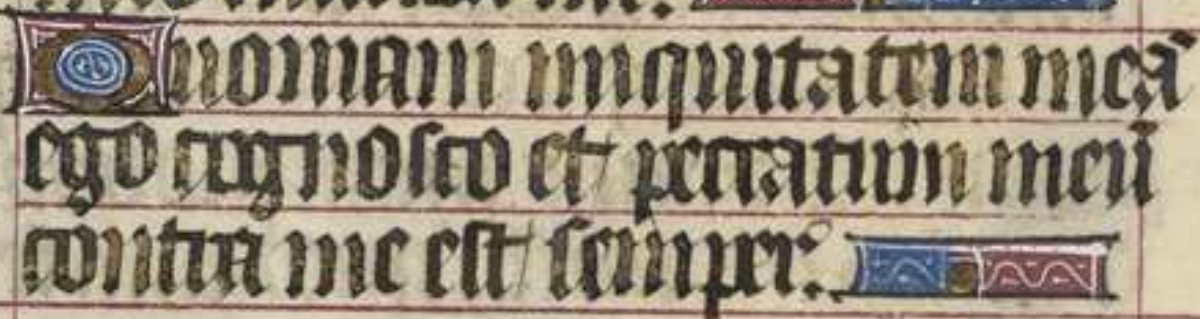 Quoniam iniquitatem meā
ego cognosco et peccatum meū
contra me est semper.